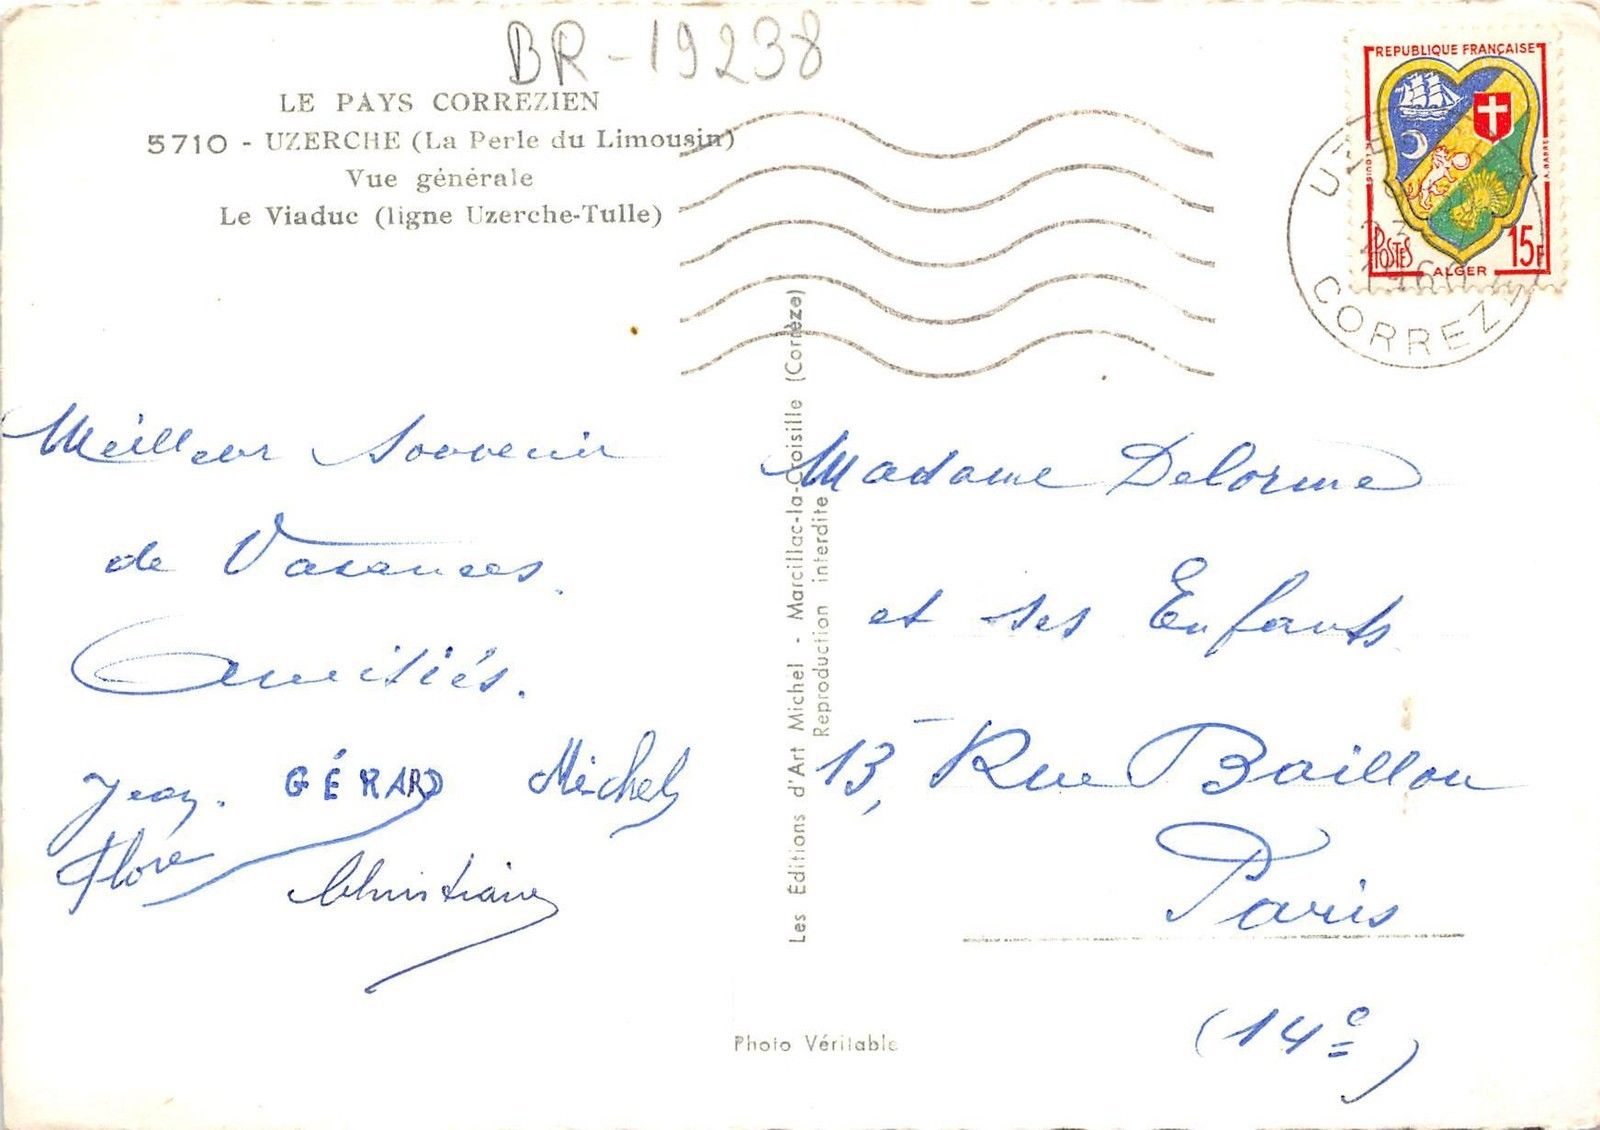 BR-19238
LE PAYS CORREZIEN
5710 - UZERCHE (La Perle du Limousin)
Vue générale
Le Viaduc (ligne Uzerche-Tulle)
REPUBLIQUE FRANÇAISE
POSTES
ALGER
15F
CORREZ
Meilleur Souvenir
de Vacances.
Amitiés.
Jean. GÉRARD Michel
Flore
Christiane
Les Éditions d'Art Michel - Marcillac-la-Croisille (Corrèze)
Reproduction interdite
Madame Delorme
et ses Enfants
13, Rue Baillou
Paris
(14e)
Photo Véritable